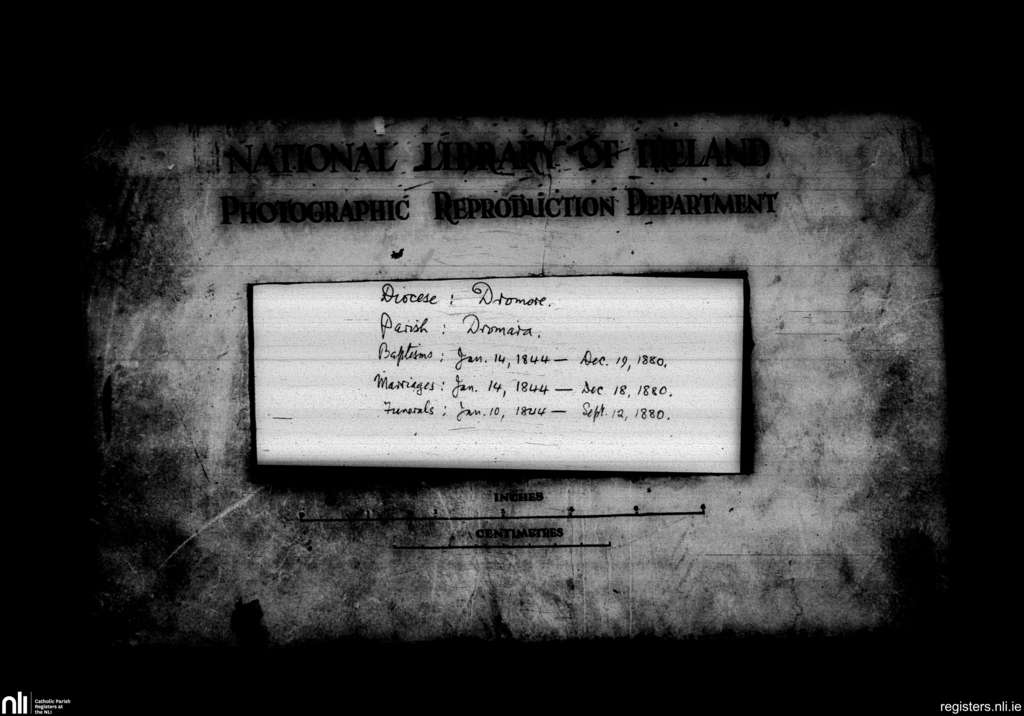 NATIONAL LIBRARY OF IRELAND
PHOTOGRAPHIC REPRODUCTION DEPARTMENT
Diocese : Dromore.
Parish : Dromara.
Baptisms : Jan. 14, 1844 — Dec. 19, 1880.
Marriages : Jan. 14, 1844 — Dec 18, 1880.
Funerals : Jan. 10, 1844 — Sept. 12, 1880.
INCHES
CENTIMETRES
nli
Catholic Parish
Registers at
the NLI
registers.nli.ie